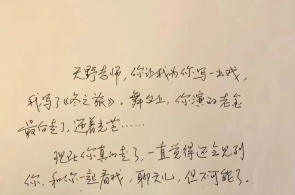 天野老师，你让我为你写一出戏，
我写了《冬之旅》。舞台上，你演的老金
最后走了，迎着光芒……
现在你真的走了，一直觉得还会见到
你，和你一起看戏，聊天儿，但不可能了。